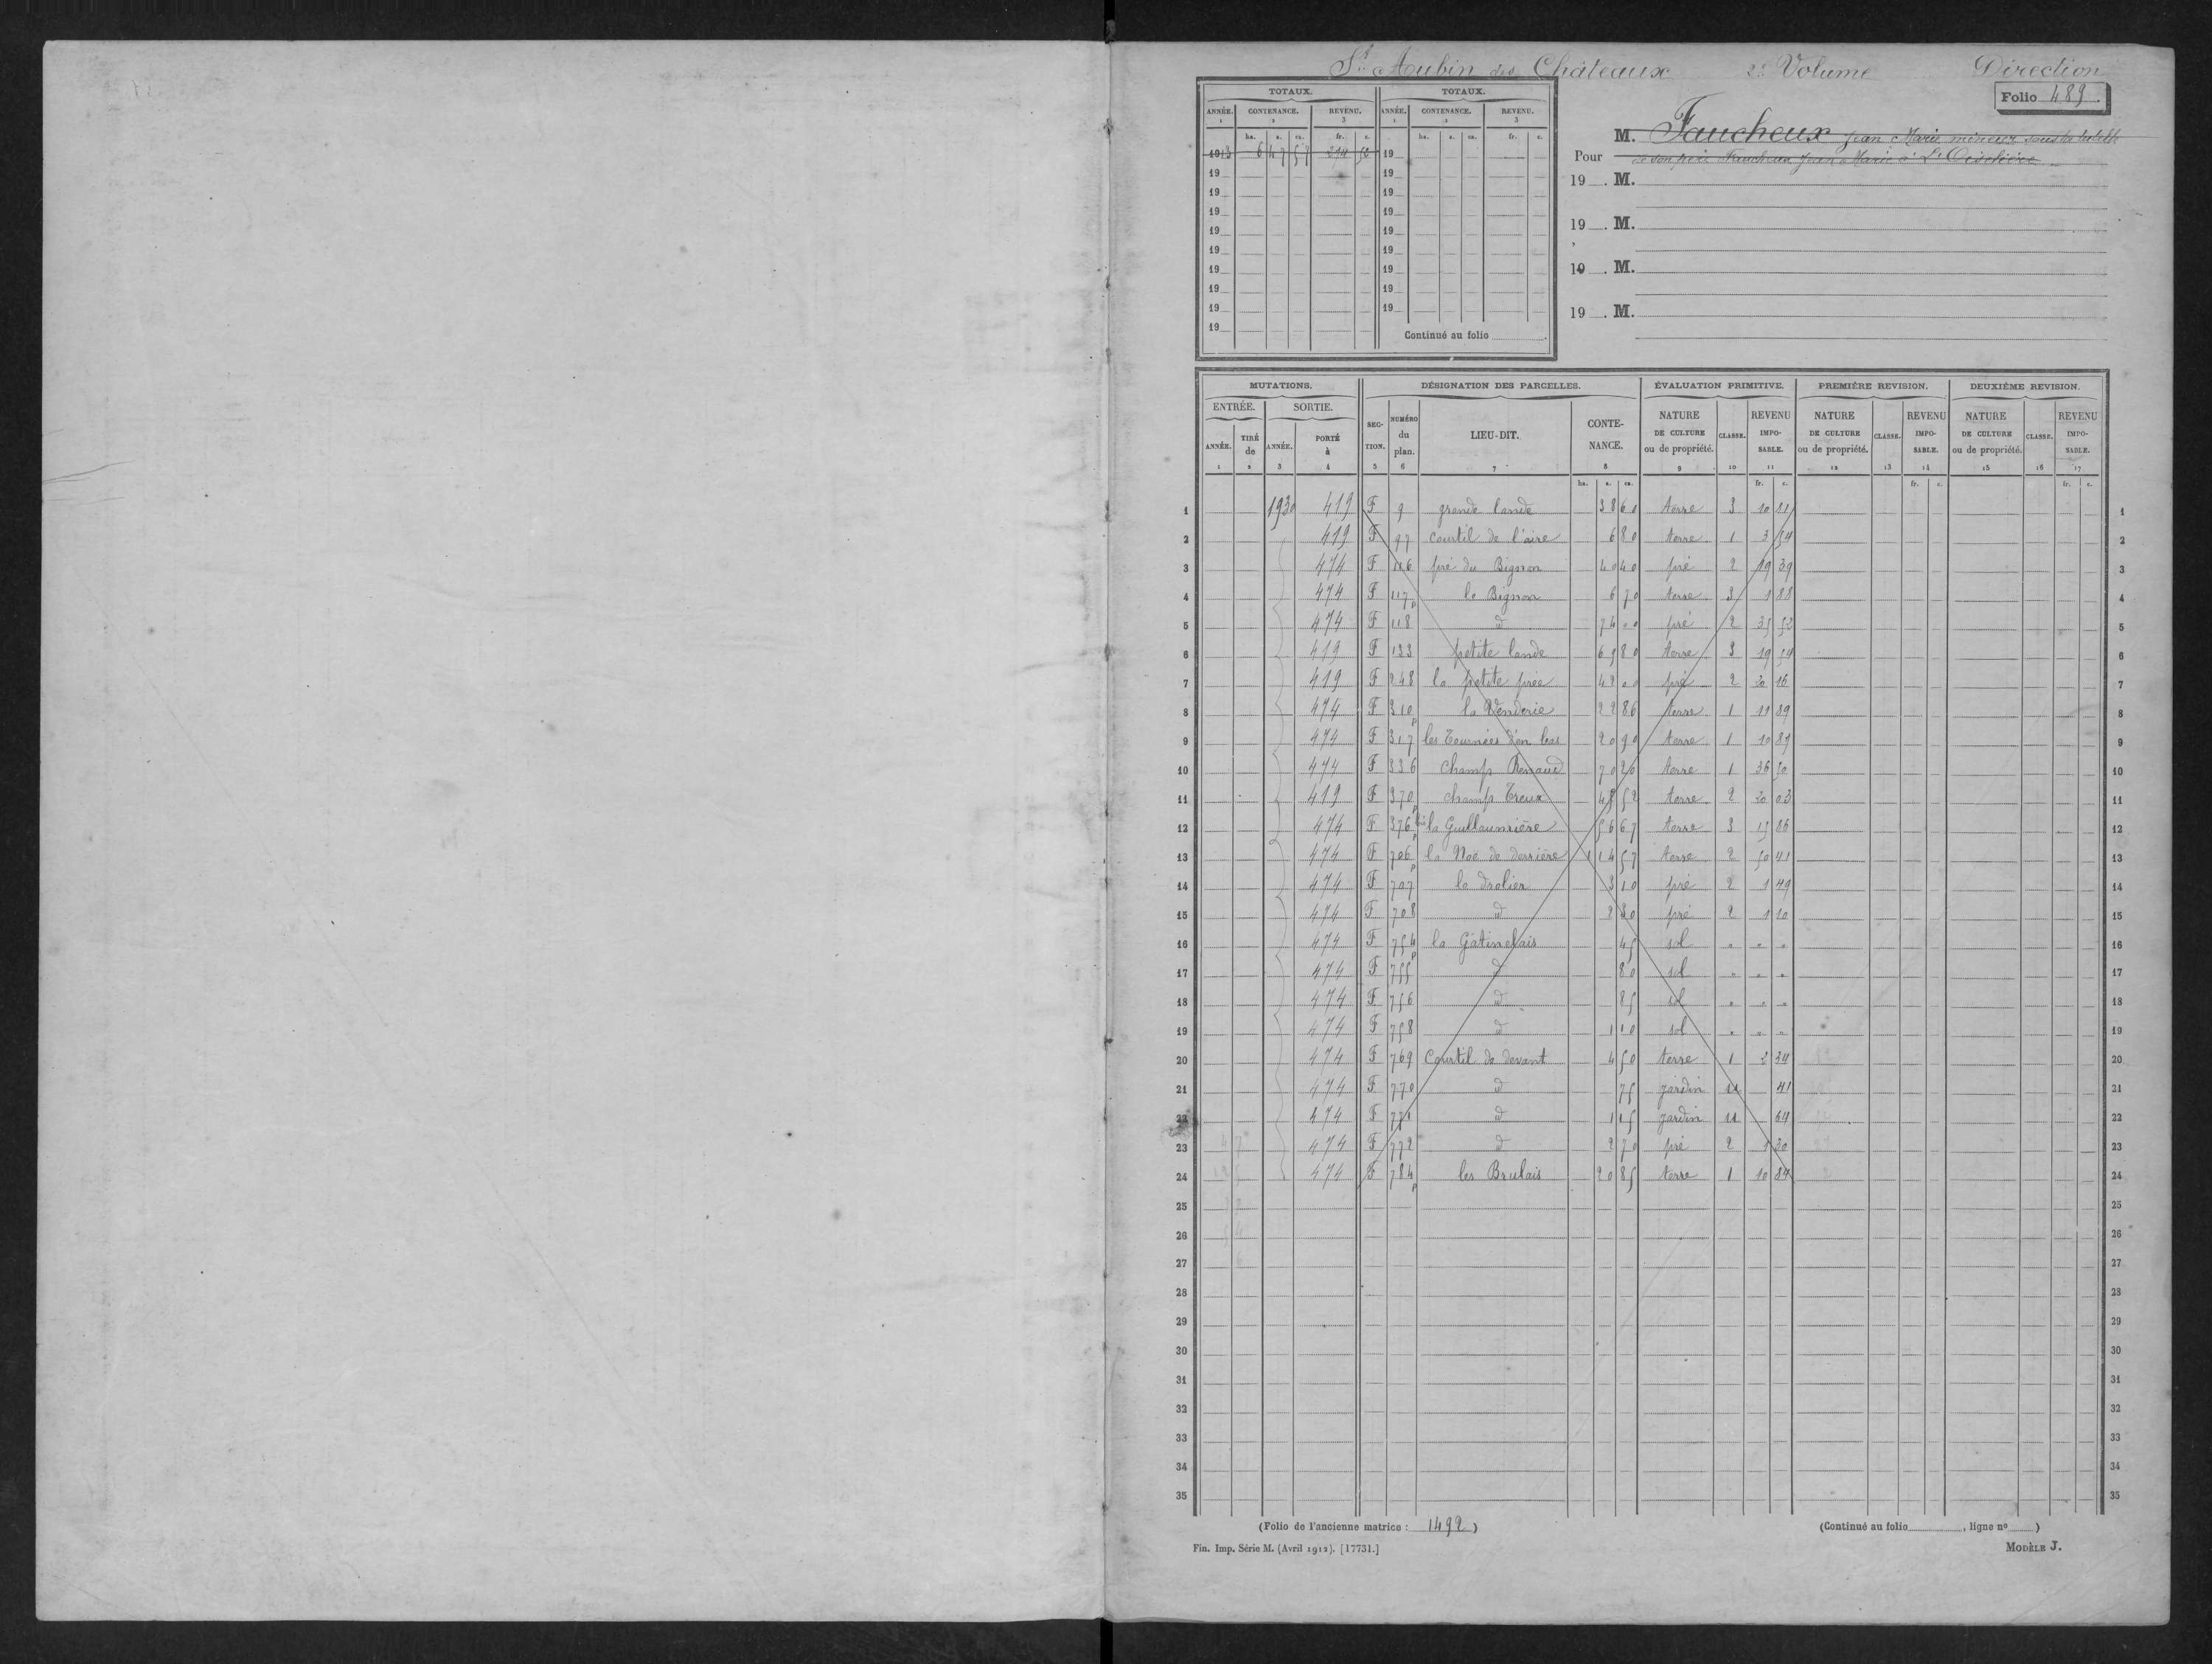 St Aubin des Châteaux 2e Volume Direction
Folio 489.
TOTAUX. TOTAUX.
ANNÉE. CONTENANCE. REVENU. ANNÉE. CONTENANCE. REVENU.
1 2 3 1 2 3
ha. a. ca. fr. c. ha. a. ca. fr. c.
1913 6 47 57 314 52 19
19 19
19 19
19 19
19 19
19 19
19 19
19 19
19 19
19 Continué au folio
M. Faucheux Jean Marie mineur sous la tutelle
Pour de son père Faucheux Jean Marie à
19 . M.
19 . M.
19 . M.
19 . M.
MUTATIONS. DÉSIGNATION DES PARCELLES. ÉVALUATION PRIMITIVE. PREMIÈRE REVISION. DEUXIÈME REVISION.
ENTRÉE. SORTIE. SEC-TION. NUMÉRO du plan. LIEU-DIT. CONTE-NANCE. NATURE DE CULTURE ou de propriété. CLASSE. REVENU IMPO-SABLE. NATURE DE CULTURE ou de propriété. CLASSE. REVENU IMPO-SABLE. NATURE DE CULTURE ou de propriété. CLASSE. REVENU IMPO-SABLE.
ANNÉE. TIRÉ de ANNÉE. PORTÉ à
1 2 3 4 5 6 7 8 9 10 11 12 13 14 15 16 17
ha. a. ca. fr. c. fr. c. fr. c.
1 1930 419 F 9 grande lande 38 60 terre 3 10 81 1
2 419 F 97 courtil de l'aire 6 80 terre 1 3 54 2
3 474 F 116 pré du Bignon 40 40 pré 2 19 39 3
4 474 F 117p le Bignon 6 70 terre 3 1 88 4
5 474 F 118 d 74 00 pré 2 35 52 5
6 419 F 133 petite lande 69 80 terre 3 19 54 6
7 419 F 248 la petite prée 42 00 pré 2 20 16 7
8 474 F 310p la 22 86 terre 1 11 89 8
9 474 F 317 les Tournées d'en bas 20 90 terre 1 10 87 9
10 474 F 336 champ Renaud 70 20 terre 1 36 50 10
11 419 F 370p champ Creux 48 52 terre 2 20 03 11
12 474 F 376p bis la Guillaumière 56 67 terre 3 15 86 12
13 474 F 706p la Noë de derrière 1 14 57 terre 2 50 41 13
14 474 F 707 le 3 10 pré 2 1 49 14
15 474 F 708 d 2 30 pré 2 1 10 15
16 474 F 754p la Gâtinelais 45 sol " " " 16
17 474 F 755 d 80 sol " " " 17
18 474 F 756 d 85 sol " " " 18
19 474 F 758 d 1 10 sol " " " 19
20 474 F 769 Courtil de devant 4 50 terre 1 2 34 20
21 474 F 770 d 75 jardin u 41 21
22 474 F 771 d 1 15 jardin u 64 22
23 474 F 772 d 2 70 pré 2 1 30 23
24 474 F 784p les Brulais 20 85 terre 1 10 84 24
25 25
26 26
27 27
28 28
29 29
30 30
31 31
32 32
33 33
34 34
35 35
(Folio de l'ancienne matrice : 1492 ) (Continué au folio , ligne no )
Fin. Imp. Série M. (Avril 1912). [17731.] MODÈLE J.